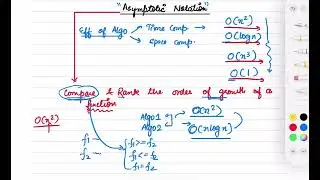 "Asymptotic Notation"
Eff of Algo → Time Comp → O(n²)
→ Space Comp. O(logn)
O(n³)
O(1)
Compare & Rank the order of growth of a
function
O(n²)
Algo1 → O(n²)
Algo2 → O(nlogn)
f₁ f₁>=f₂
f₂ f₁<=f₂
f₁=f₂